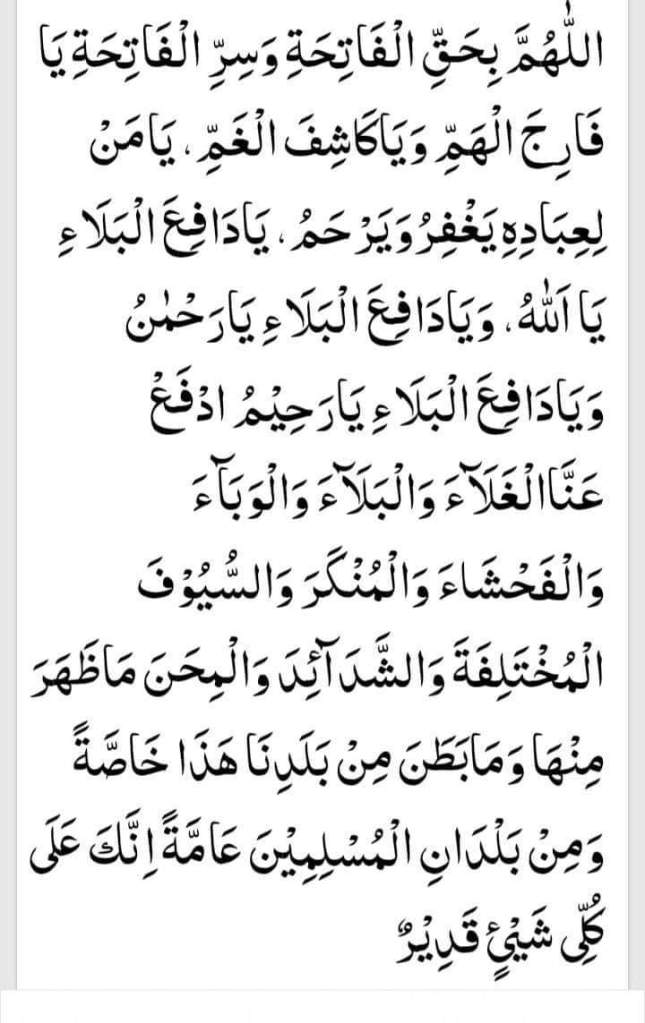 اللّٰهُمَّ بِحَقِّ الْفَاتِحَةِ وَسِرِّ الْفَاتِحَةِ يَا
فَارِجَ الْهَمِّ وَيَاكَاشِفَ الْغَمِّ، يَامَنْ
لِعِبَادِهِ يَغْفِرُ وَيَرْحَمُ، يَادَافِعَ الْبَلَاءِ
يَا اَللّٰهُ، وَيَادَافِعَ الْبَلَاءِ يَارَحْمٰنُ
وَيَادَافِعَ الْبَلَاءِ يَارَحِيْمُ ادْفَعْ
عَنَّاالْغَلَآءَ وَالْبَلَآءَ وَالْوَبَآءَ
وَالْفَحْشَاءَ وَالْمُنْكَرَ وَالسُّيُوْفَ
الْمُخْتَلِفَةَ وَالشَّدَآئِدَ وَالْمِحَنَ مَاظَهَرَ
مِنْهَا وَمَابَطَنَ مِنْ بَلَدِنَا هَذَا خَاصَّةً
وَمِنْ بَلْدَانِ الْمُسْلِمِيْنَ عَامَّةً اِنَّكَ عَلَى
كُلِّى شَيْئٍ قَدِيْرٌ